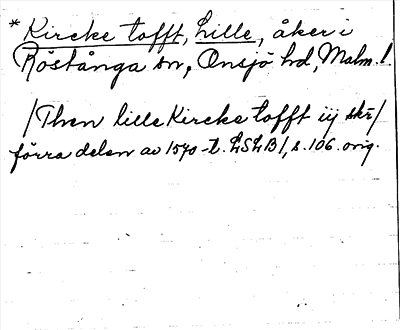 * Kircke tofft, Lille, åker i
Röstånga sn, Onsjö hd, Malm. l.
/Then lille Kircke tofft iij skr/
förra delen av 1570-t. LSLB 1, s. 106. orig.